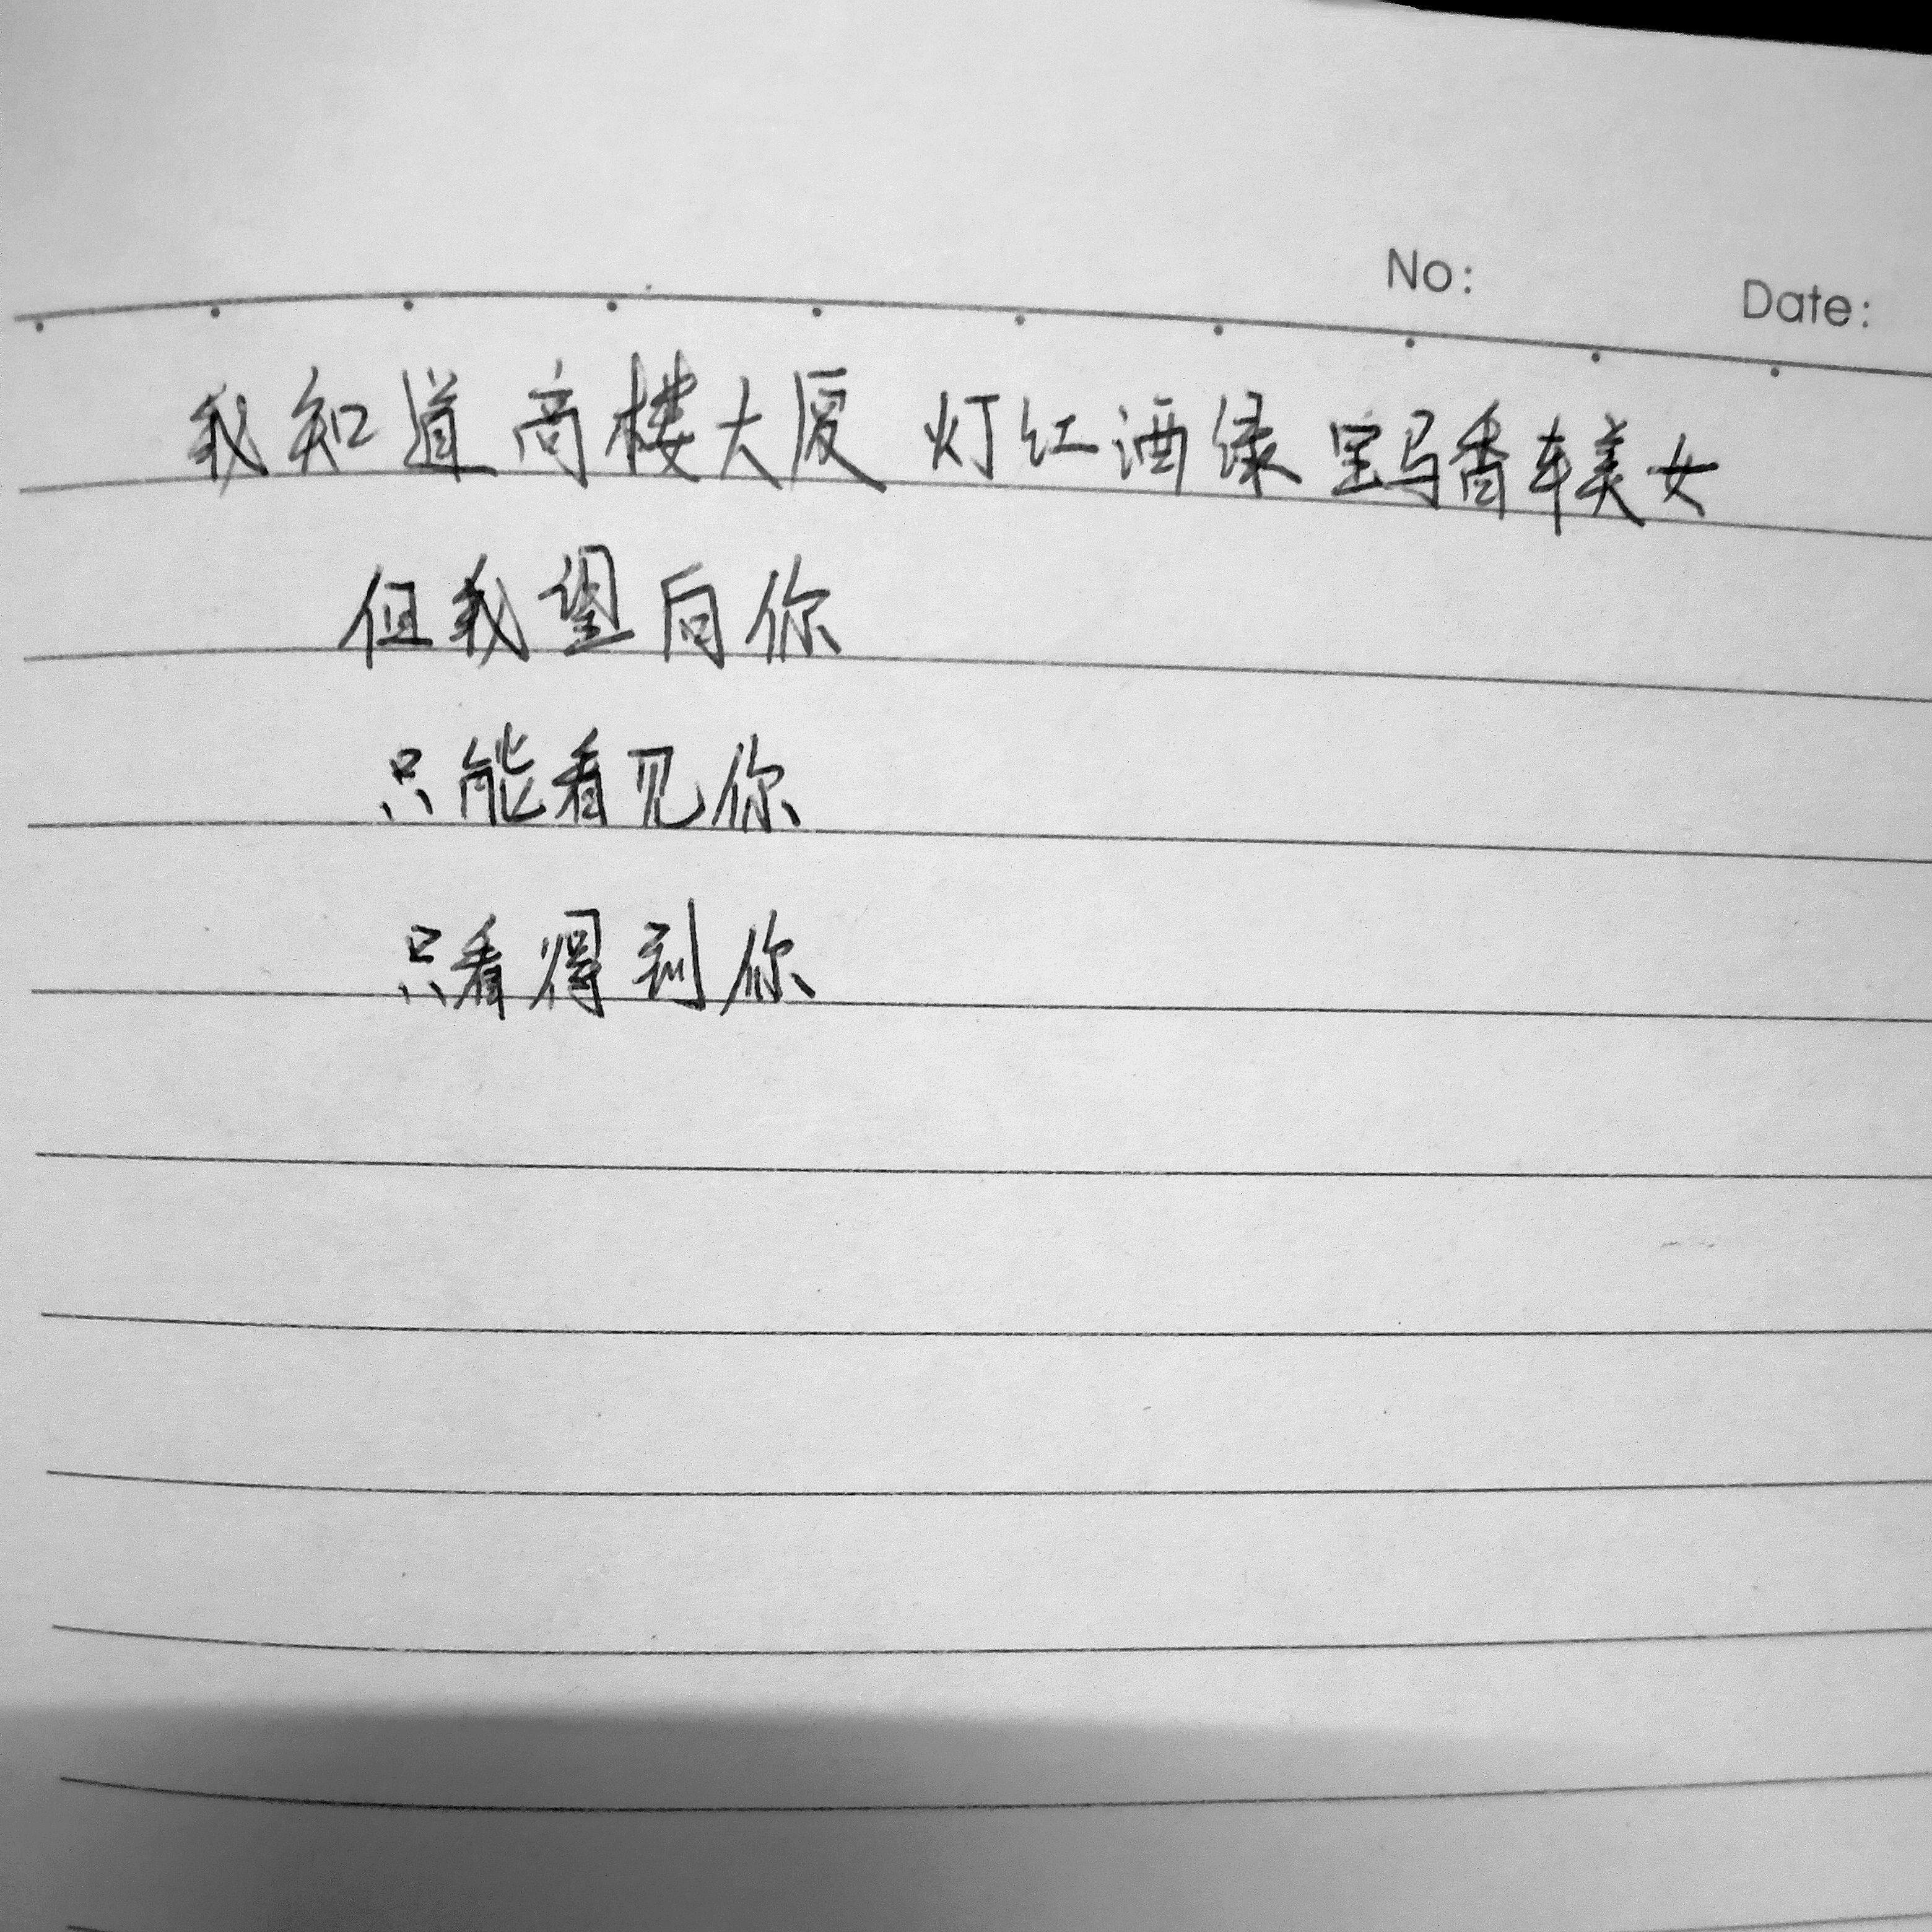 No: Date:
我知道高楼大厦 灯红酒绿 宝马香车美女
但我望向你
只能看见你
只看得到你